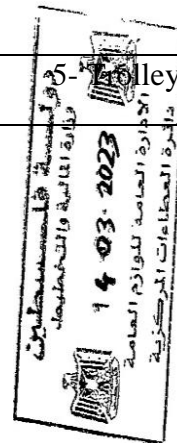 5- Trolley
دولة فلسطين
وزارة المالية والتخطيط
14-03-2023
الادارة العامة للوازم العامة
دائرة العطاءات المركزية